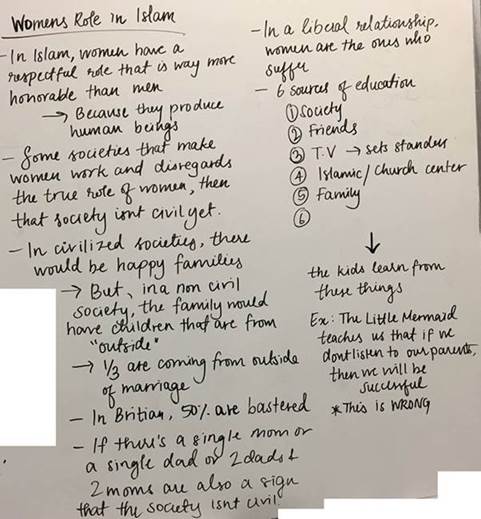 Womens Role in Islam
- In Islam, women have a
respectful role that is way more
honorable than men
→ Because they produce
human beings
- Some societies that make
women work and disregards
the true role of women, then
that society isnt civil yet.
- In civilized societies, there
would be happy families
→ But, in a non civil
society, the family would
have children that are from
"outside"
→ 1/3 are coming from outside
of marriage
- In Britian, 50% are bastered
- If there's a single mom or
a single dad or 2 dads &
2 moms are also a sign
that the society isnt civil
- In a liberal relationship,
women are the ones who
suffer
- 6 sources of education
① Society
② Friends
③ T.V → sets standers
④ Islamic/Church center
⑤ Family
⑥
↓
the kids learn from
these things
Ex: The Little Mermaid
teaches us that if we
dont listen to our parents,
then we will be
successful
*This is WRONG